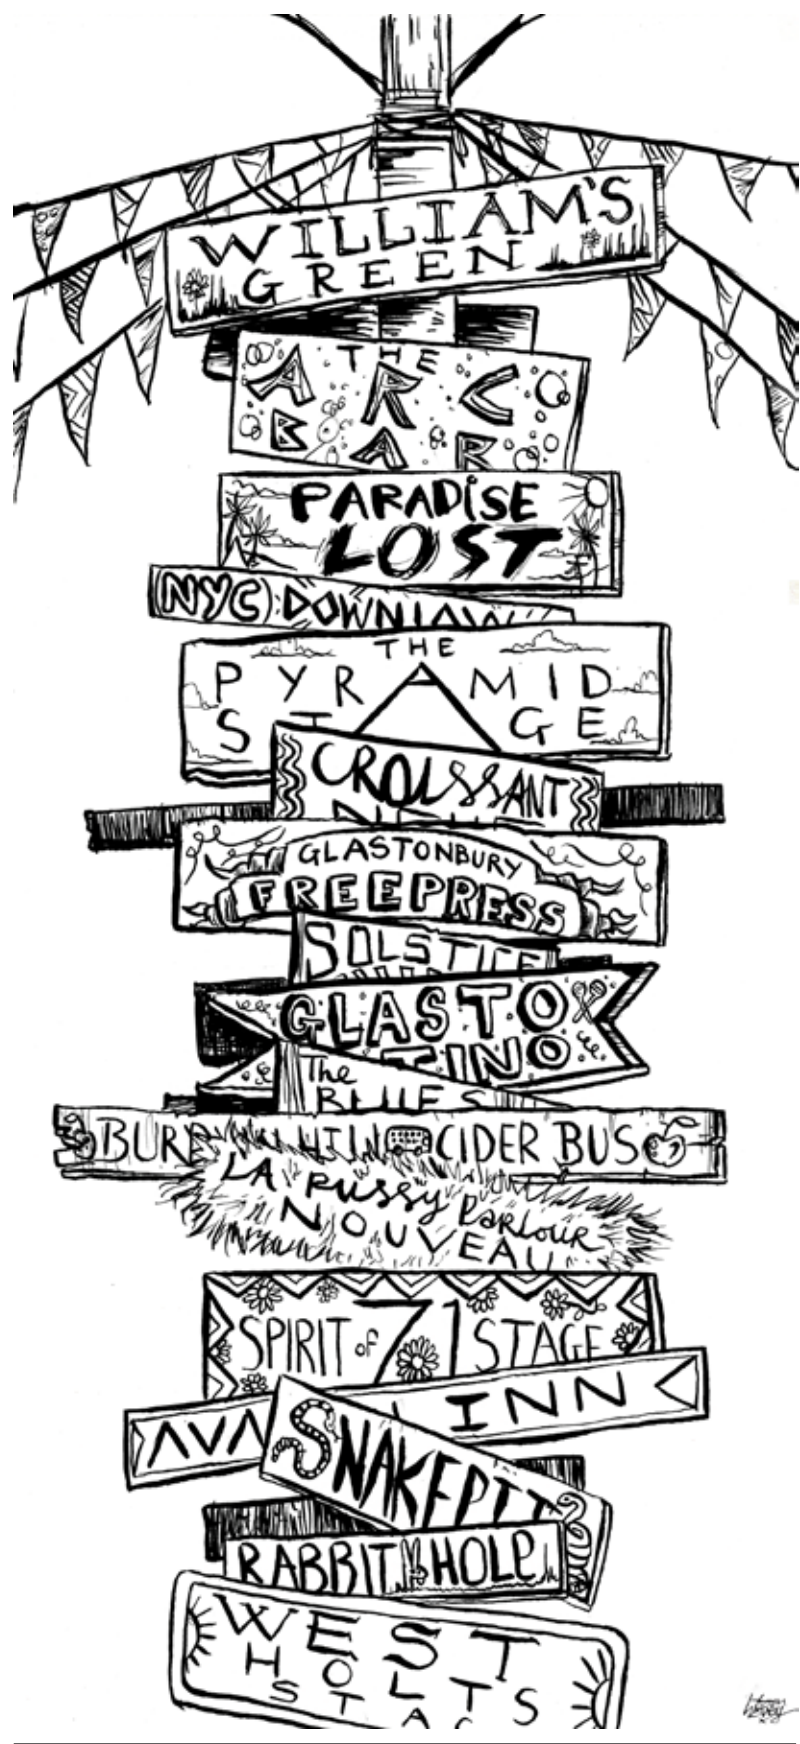 WILLIAM'S
GREEN
THE
ARC
BAR
PARADISE
LOST
(NYC) DOWNLOW
THE
PYRAMID
ST GE
CROISSANT
GLASTONBURY
FREEPRESS
SOLSTICE
GLASTO
TINO
The
BLUES
BURR HILL CIDER BUS
LA PUSSY PARLOUR
NOUVEAU
SPIRIT of 71 STAGE
AVA INN
SNAKEPIT
RABBIT HOLE
WEST
HOLTS
STAG